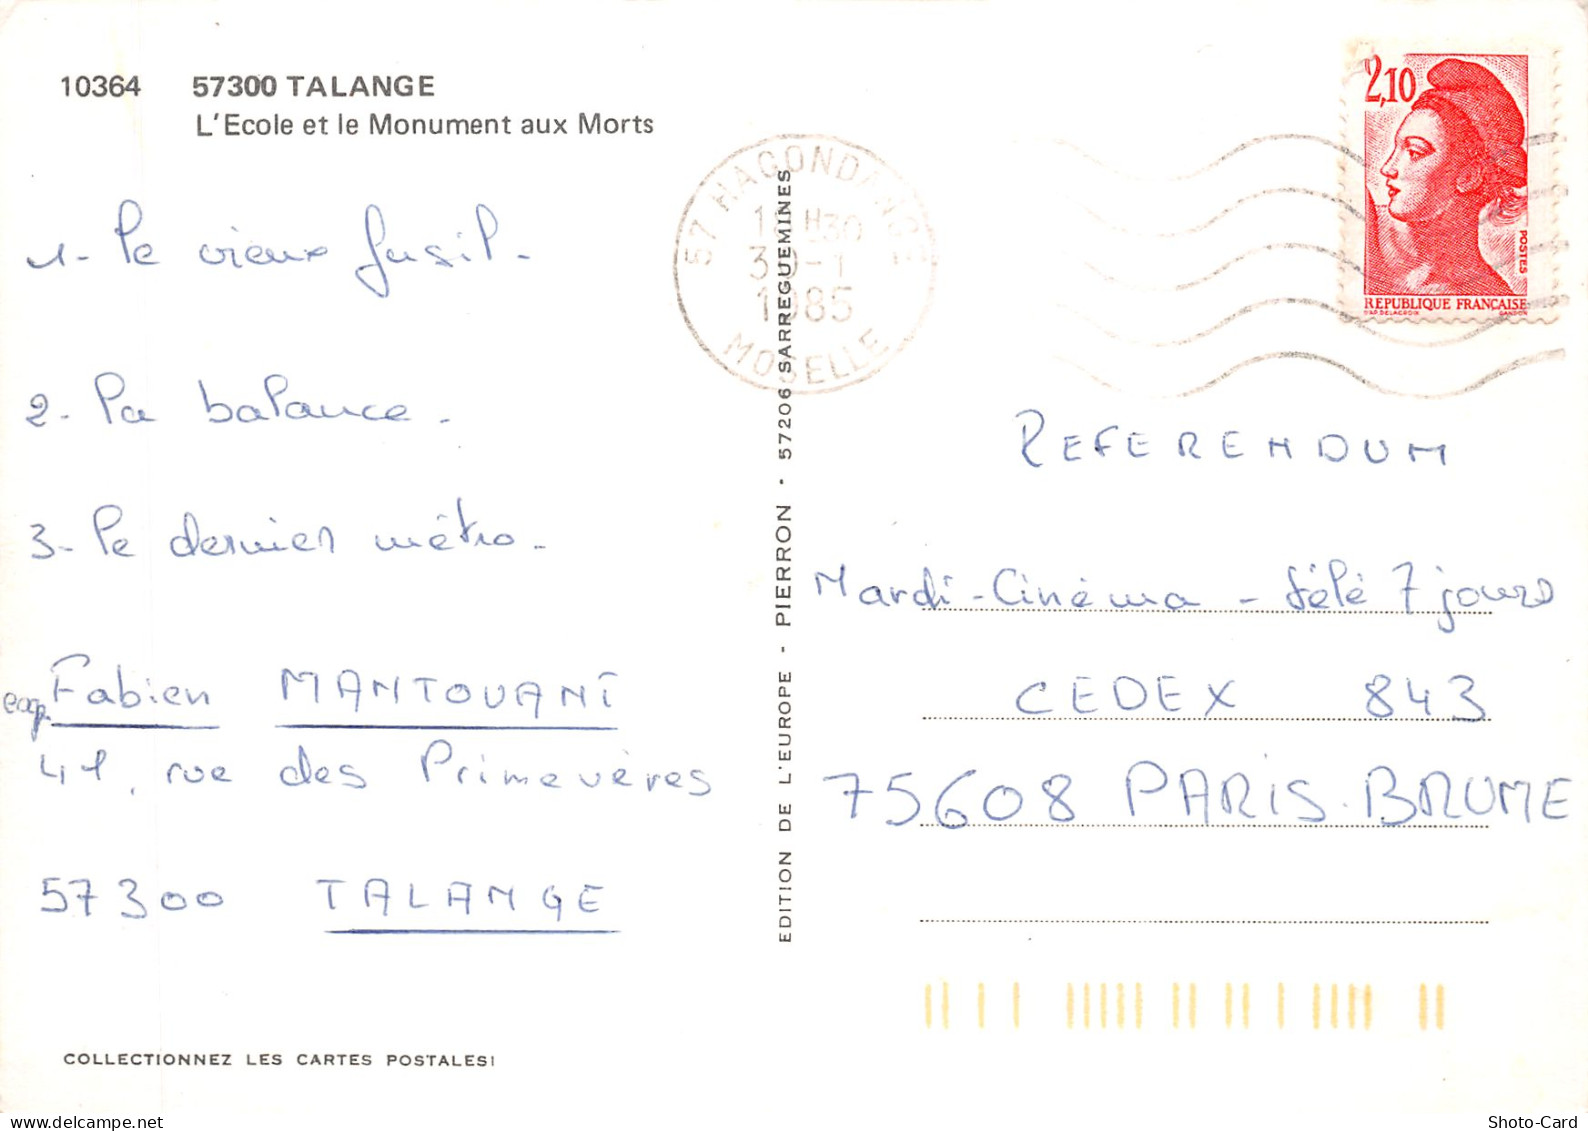 10364 57300 TALANGE
L'Ecole et le Monument aux Morts
1- le vieux fusil.
2- la balance.
3- le dernier métro.
exp. Fabien MANTOVANI
41, rue des Primevères
57300 TALANGE
COLLECTIONNEZ LES CARTES POSTALES!
EDITION DE L'EUROPE - PIERRON - 57206 SARREGUEMINES
57 HAGONDANGE
30-1
1985
MOSELLE
2,10
POSTES
REPUBLIQUE FRANÇAISE
D'AP. DELACROIX GANDON
REFERENDUM
Mardi-Cinéma - Télé 7 jours
CEDEX 843
75608 PARIS-BRUNE
Shoto-Card